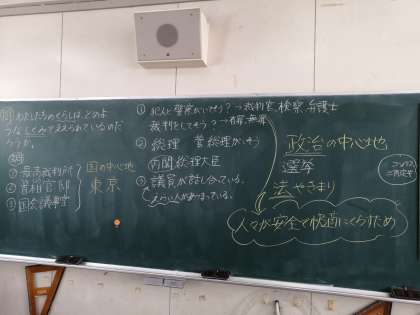 問 わたしたちのくらしは、どのよ
うなしくみで支えられているのだ
ろうか。
① 最高裁判所
② 首相官邸
③ 国会議事堂
国の中心地
東京
① 犯人と警察がいそう?→裁判官、検察、弁護士
裁判をしてそう?→有罪・無罪
② 総理 菅総理がいそう
内閣総理大臣
③ 議員が話し合っている。
えらい人があつまっている。
政治の中心地
選挙
法やきまり
人々が安全で快適にくらすため